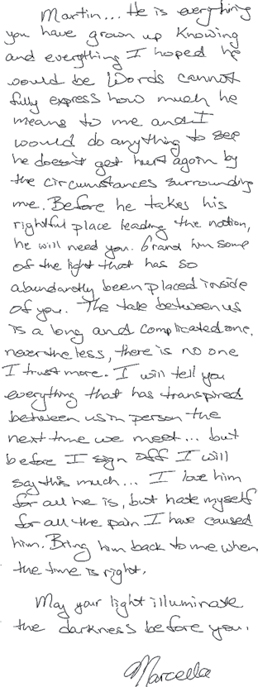 Martin... He is everything
you have grown up knowing
and everything I hoped he
would be. Words cannot
fully express how much he
means to me and I
would do anything to see
he doesn't get hurt again by
the circumstances surrounding
me. Before he takes his
rightful place leading the nation,
he will need you. Grand him some
of the light that has so
abundantly been placed inside
of you. The tale between us
is a long and complicated one,
never the less, there is no one
I trust more. I will tell you
everything that has transpired
between us in person the
next time we meet... but
before I sign off I will
say this much... I love him
for all he is, but hate myself
for all the pain I have caused
him. Bring him back to me when
the time is right.
May your light illuminate
the darkness before you.
Marcella